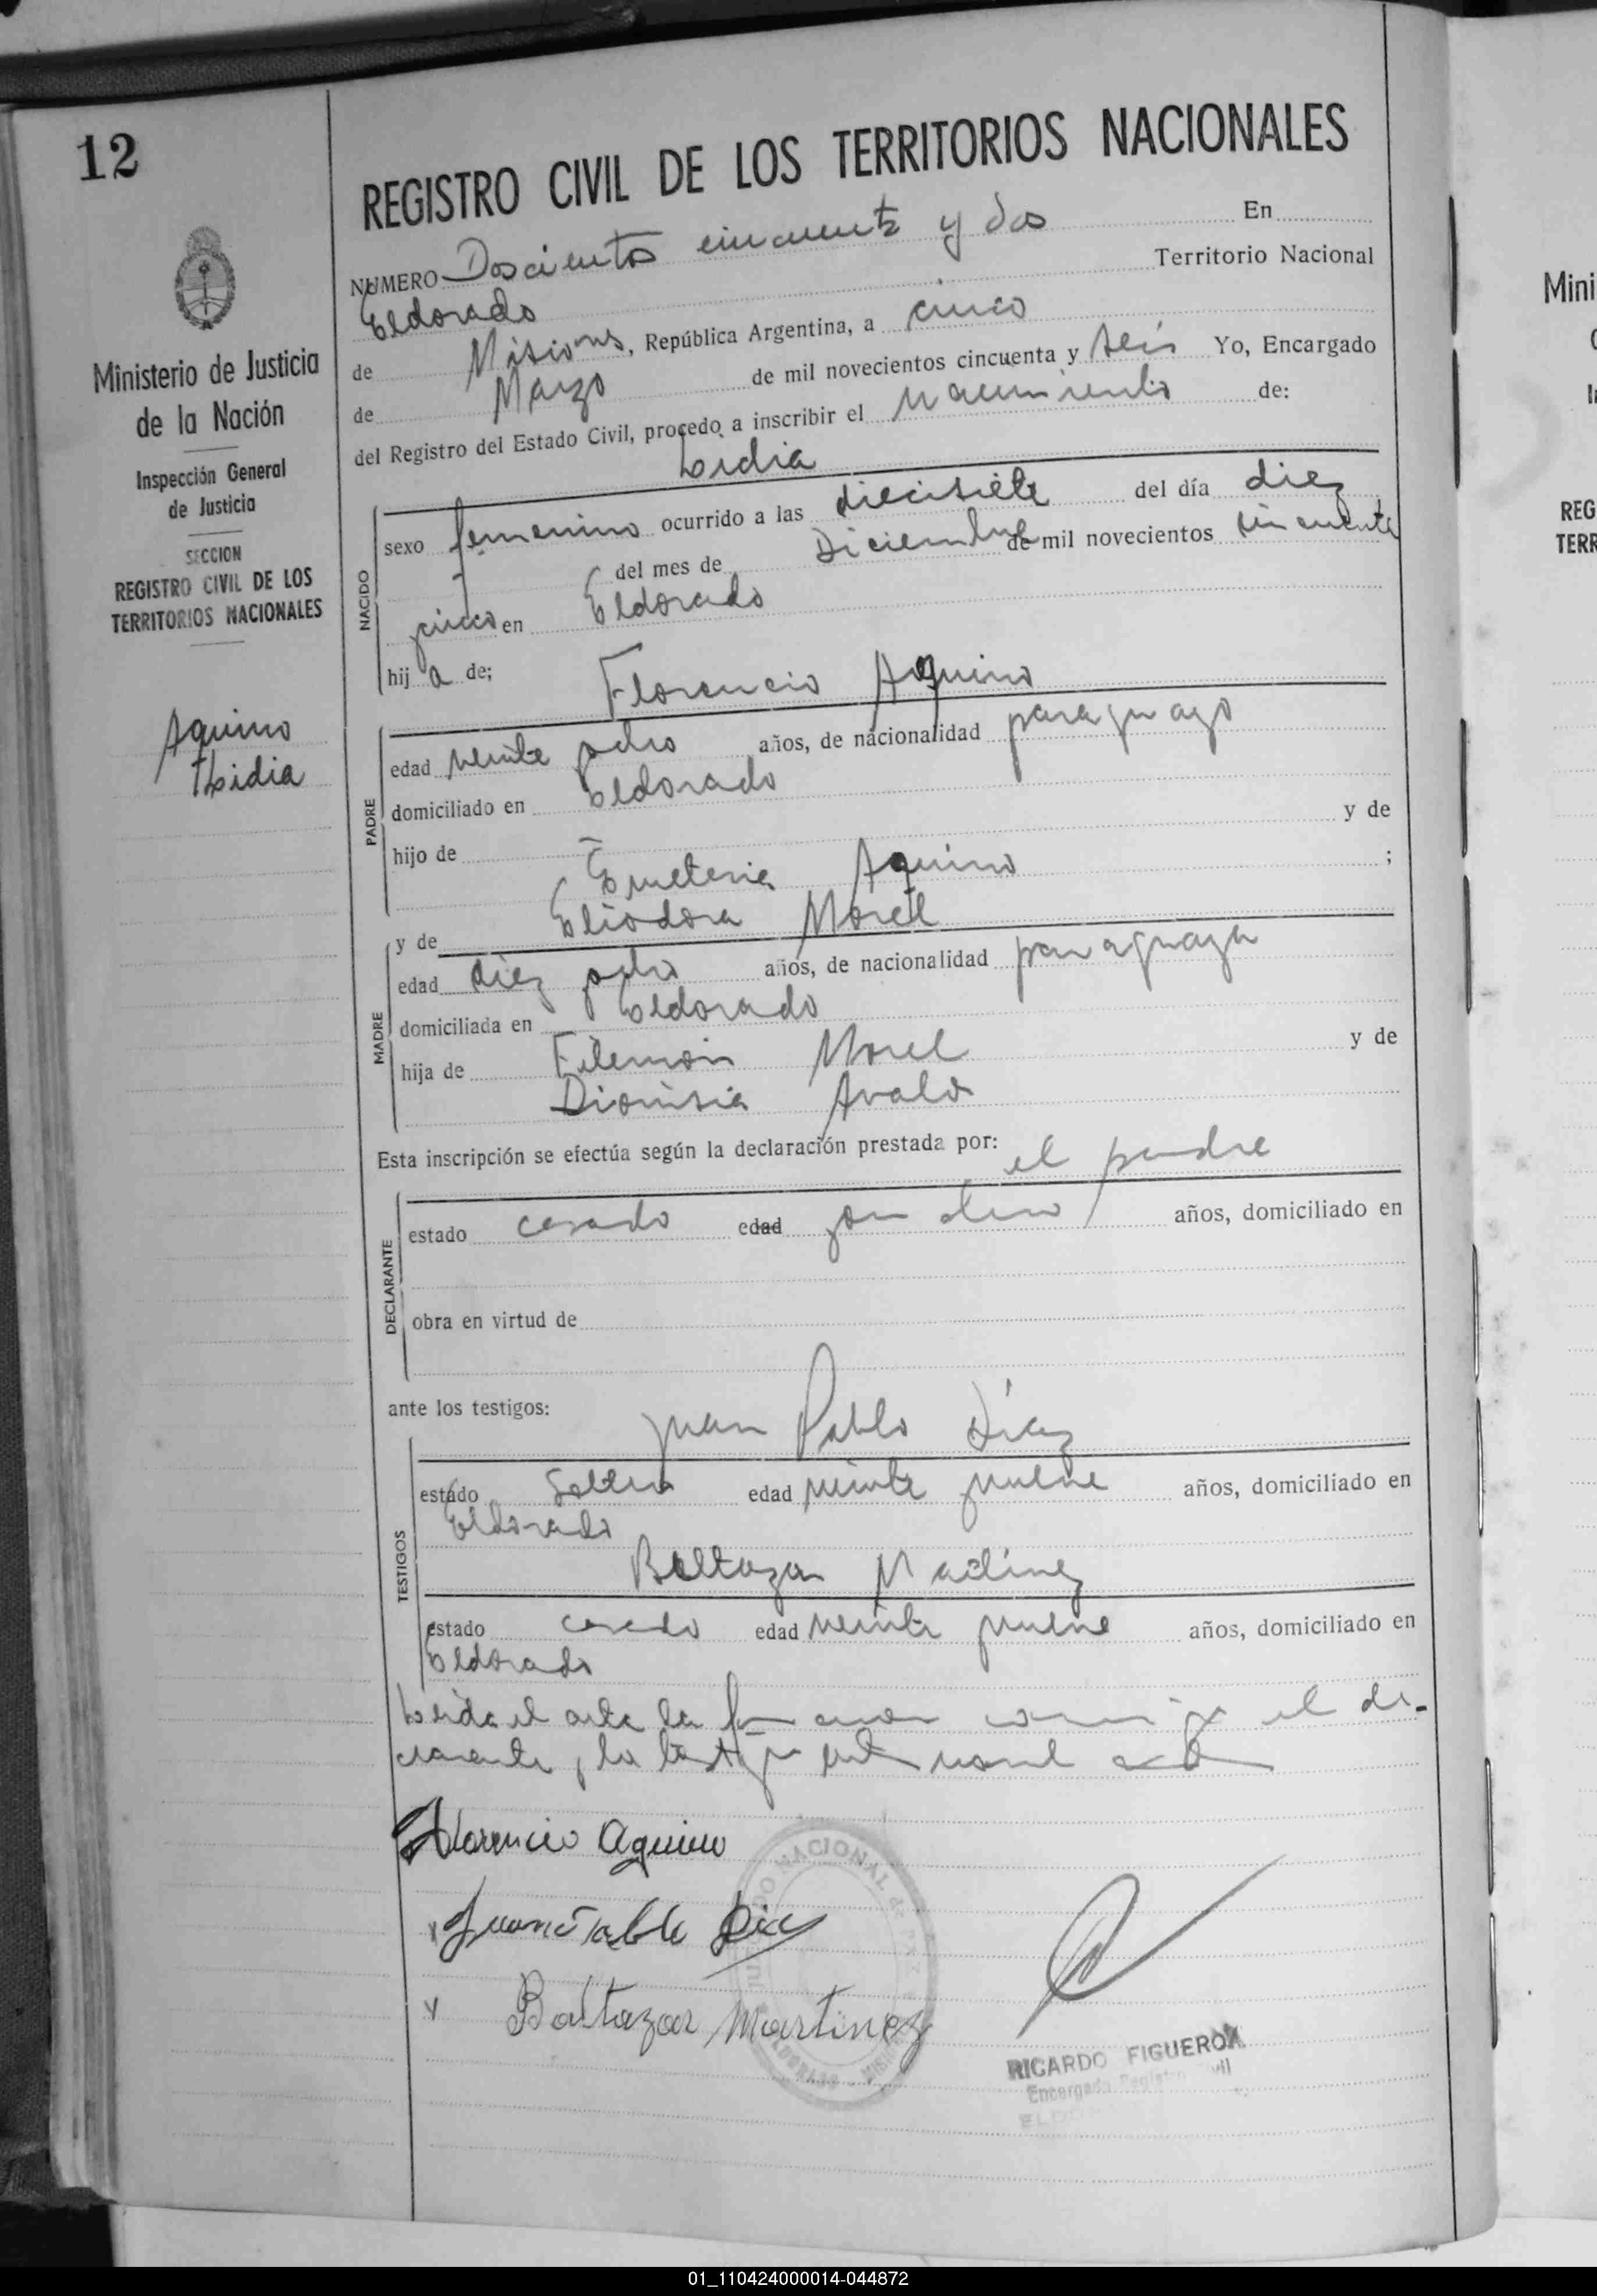 12
Ministerio de Justicia
de la Nación
Inspección General
de Justicia
SECCION
REGISTRO CIVIL DE LOS
TERRITORIOS NACIONALES
Aquino
Lidia
REGISTRO CIVIL DE LOS TERRITORIOS NACIONALES
NUMERO Doscientos cincuenta y dos En
Eldorado Territorio Nacional
de Misiones, República Argentina, a cinco
de Marzo de mil novecientos cincuenta y seis Yo, Encargado
del Registro del Estado Civil, procedo a inscribir el nacimiento de:
Lidia
NACIDO
sexo femenino ocurrido a las diecisiete del día diez
del mes de Diciembre de mil novecientos cincuenta
y cinco en Eldorado
hija de;
Florencio Aquino
PADRE
edad veinte y ocho años, de nacionalidad paraguayo
domiciliado en Eldorado
hijo de y de
Aquino ;
y de Eliodora Morel
MADRE
edad diez y ocho años, de nacionalidad paraguaya
domiciliada en Eldorado
hija de Filemón Morel y de
Dionisia Avalos
Esta inscripción se efectúa según la declaración prestada por: el padre
DECLARANTE
estado casado edad años, domiciliado en
obra en virtud de
ante los testigos:
Juan Pablo Díaz
TESTIGOS
estado soltero edad veinte y nueve años, domiciliado en
Eldorado
Baltazar Martinez
estado casado edad veinte y nueve años, domiciliado en
Eldorado
Leida el acta la el de-
clarante, los testigos
Florencio Aquino
Juan Pablo Diaz
Baltazar Martinez
RICARDO FIGUEROA
Encargado Registro Civil
01_110424000014-044872
Mini
REG
TERR